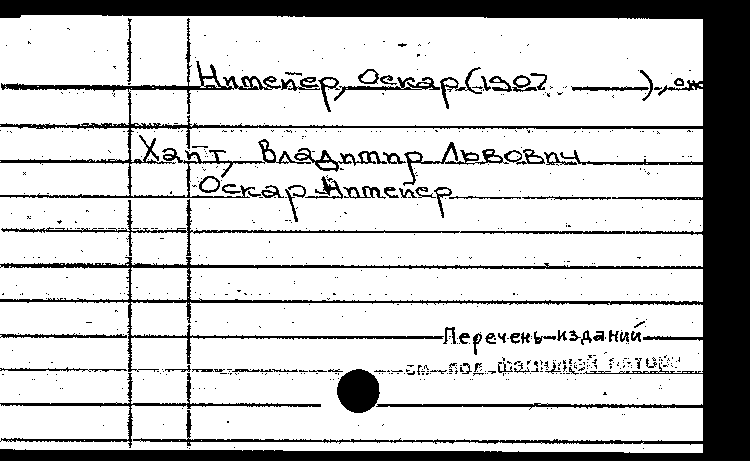 Нимейер, Оскар (1907 ), о нем
Хайт, Владимир Львович
Оскар Нимейер
Перечень изданий
см. под фамилией автора